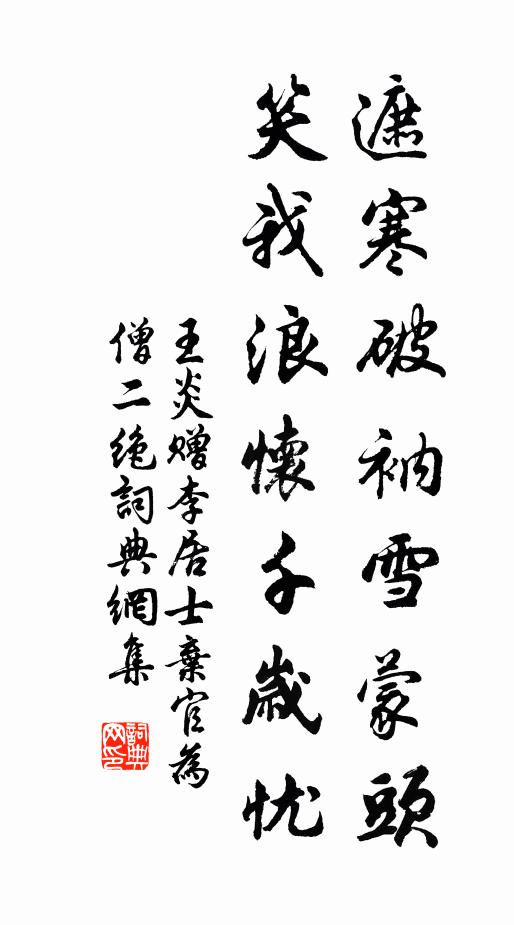 遮寒破衲雪蒙頭
笑我浪懷千歲忧
王炎赠李居士棄官為
僧二绝詞典網集
詞典
网印